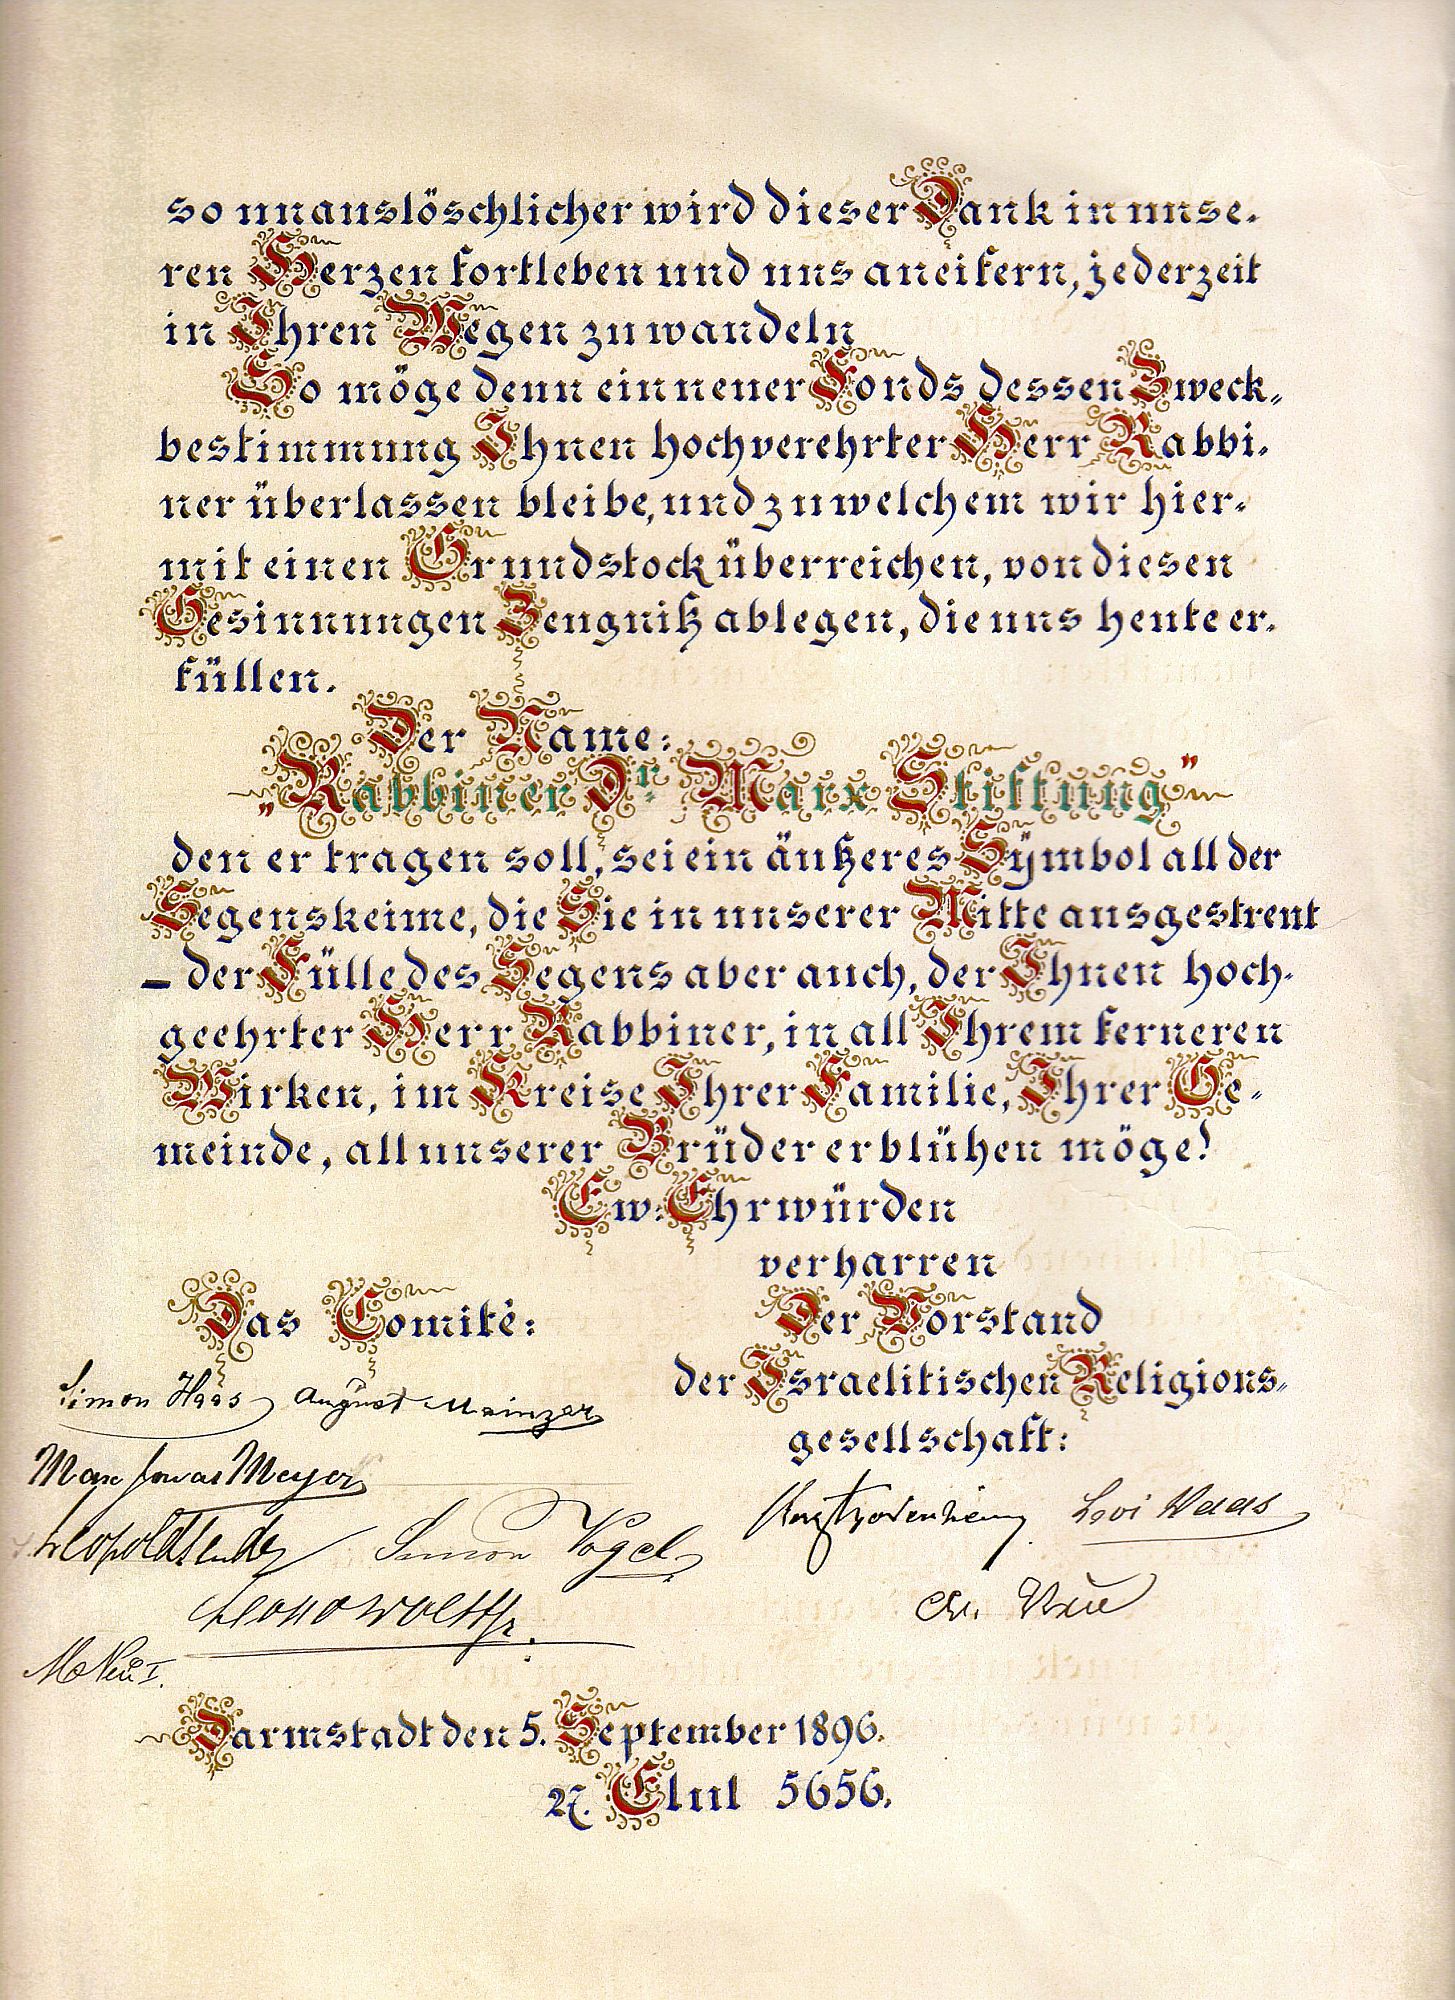 so unauslöschlicher wird dieser Dank in unse-
ren Herzen fortleben und uns aneifern, jederzeit
in Ihren Wegen zu wandeln
So möge denn ein neuer Fonds dessen Zweck-
bestimmung Ihnen hochverehrter Herr Rabbi-
ner überlassen bleibe, und zu welchem wir hier-
mit einen Grundstock überreichen, von diesen
Gesinnungen Zeugniß ablegen, die uns heute er-
füllen.
Der Name:
„Rabbiner Dr. Marx Stiftung"
den er tragen soll, sei ein äußeres Sÿmbol all der
Segenskeime, die Sie in unserer Mitte ausgestreut
– der Fülle des Segens aber auch, der Ihnen hoch-
geehrter Herr Rabbiner, in all Ihrem ferneren
Wirken, im Kreise Ihrer Familie, Ihrer Ge-
meinde, all unserer Brüder erblühen möge!
Ew: Ehrwürden
verharren
Das Comité:
Simon Haas August Mainzer
Max Jonas Meyer
Leopold
Simon Vogel
M Neu I.
Der Vorstand
der Israelitischen Religions-
gesellschaft:
Levi
Neu
Darmstadt den 5. September 1896.
27. Elul 5656.